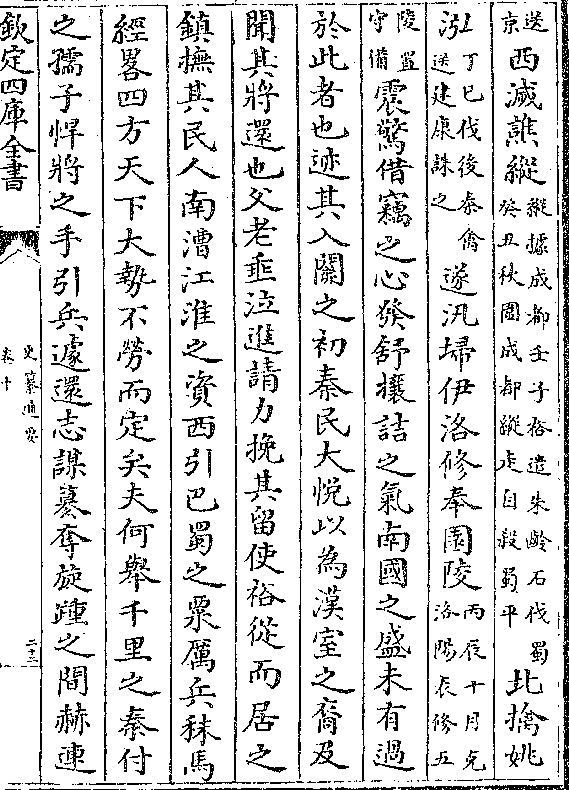 送京西滅譙縱縱據成都壬子裕遣朱齡石伐蜀癸丑秋圍成都縱走自殺蜀平北擒姚
泓丁巳伐後秦禽送建康誅之遂汎埽伊洛修奉園陵丙辰十月克洛陽表修五
陵置守備震驚借竊之心發舒攘詰之氣南國之盛未有過
於此者也迹其入關之初秦民大悅以為漢室之裔及
聞其將還也父老垂泣進請力挽其留使裕從而居之
鎮撫其民人南漕江淮之資西引巴蜀之粟厲兵秣馬
經畧四方天下大勢不勞而定矣夫何舉千里之秦付
之孺子悍將之手引兵遽還志謀簒奪旋踵之間赫連
欽定四庫全書
史纂通要
卷十
二十三